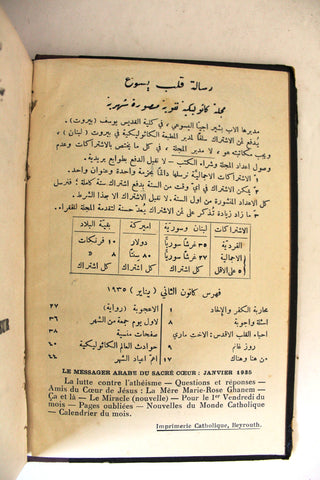 رسالة قلب يسوع
مجلة كاثوليكية تقوية مصورة شهرية
مديرها الاب بشير اجيا اليسوعي ، في كلية القديس يوسف (بيروت) .
يدفع ثمن الاشتراك سلفًا لمدير المطبعة الكاثوليكية في بيروت ( لبنان ) ،
ويجب مكاتبته هو ، لا مدير المجلة ، في كل ما يختص بالاشتراكات وعدم
وصول اعداد المجلة وشراء الكتب – لا نقبل الدفع طوابع بريدية .
٢ً الاشتراكات الاجمالية نرسلها دائمًا بالاسم والعنوان
٣ً يمكن الاشتراك في اي وقت من السنة بدفع اشتراك سنة كاملة ؛ فنرسل
كل الاعداد المنشورة من اول السنة . لا نقبل الاشتراك الا بهذا الشرط .
٤ً ما زاد زيادة تذكر على ثمن الاشتراك يُعدّ حسنة لتقدمة المجلة للفقراء .
الاشتراكات | لبنان وسورية | اميركة | بقية البلاد
الفردية | ٣٥ غرشًا سوريًا | دولار | ١٠ فرنكات
الاجمالية | ٢٥ غرشًا سوريًا | ٨٠ سنتًا | ٨ »
٥ على الاقل | كل اشتراك | كل اشتراك | كل اشتراك
فهرس كانون الثاني ( يناير ) ١٩٣٥
محاربة الكفر والإلحاد ١ الاعجوبة (رواية) ٢٧
اسئلة واجوبة ٨ لاول يوم جمعة من الشهر
احباء القلب الاقدس: الاخت ماري صفحات منسية ٣٨
روز غانم ٩ حوادث العالم الكاثوليكي ٦٠
من هنا وهناك ١٧ اهم اعياد الشهر ٦٤
LE MESSAGER ARABE DU SACRÉ CŒUR : JANVIER 1935
La lutte contre l'athéisme — Questions et réponses —
Amis du Cœur de Jésus : La Mère Marie-Rose Ghanem —
Ça et là — Le Miracle (nouvelle) — Pour le 1er Vendredi du
mois — Pages oubliées — Nouvelles du Monde Catholique
— Calendrier du mois.
Imprimerie Catholique, Beyrouth.